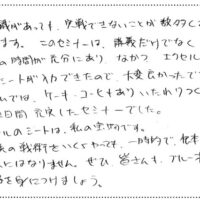 識があっても、実戦できないことが数多くあ
ます。このセミナーは、講義だけでなく
の時間が充分にあり、なおかつ エクセル
ートが入力できたので、大変良かったで
ムでは、ケーキ・コーヒーもあり いたれりつく
2日間 充実したセミナーでした。
ルのシートは、私の宝物です。
の戦術をいくらやっても、一時的で、根本
にはなりません。ぜひ、皆さんも、ブルー
を身につけましょう。